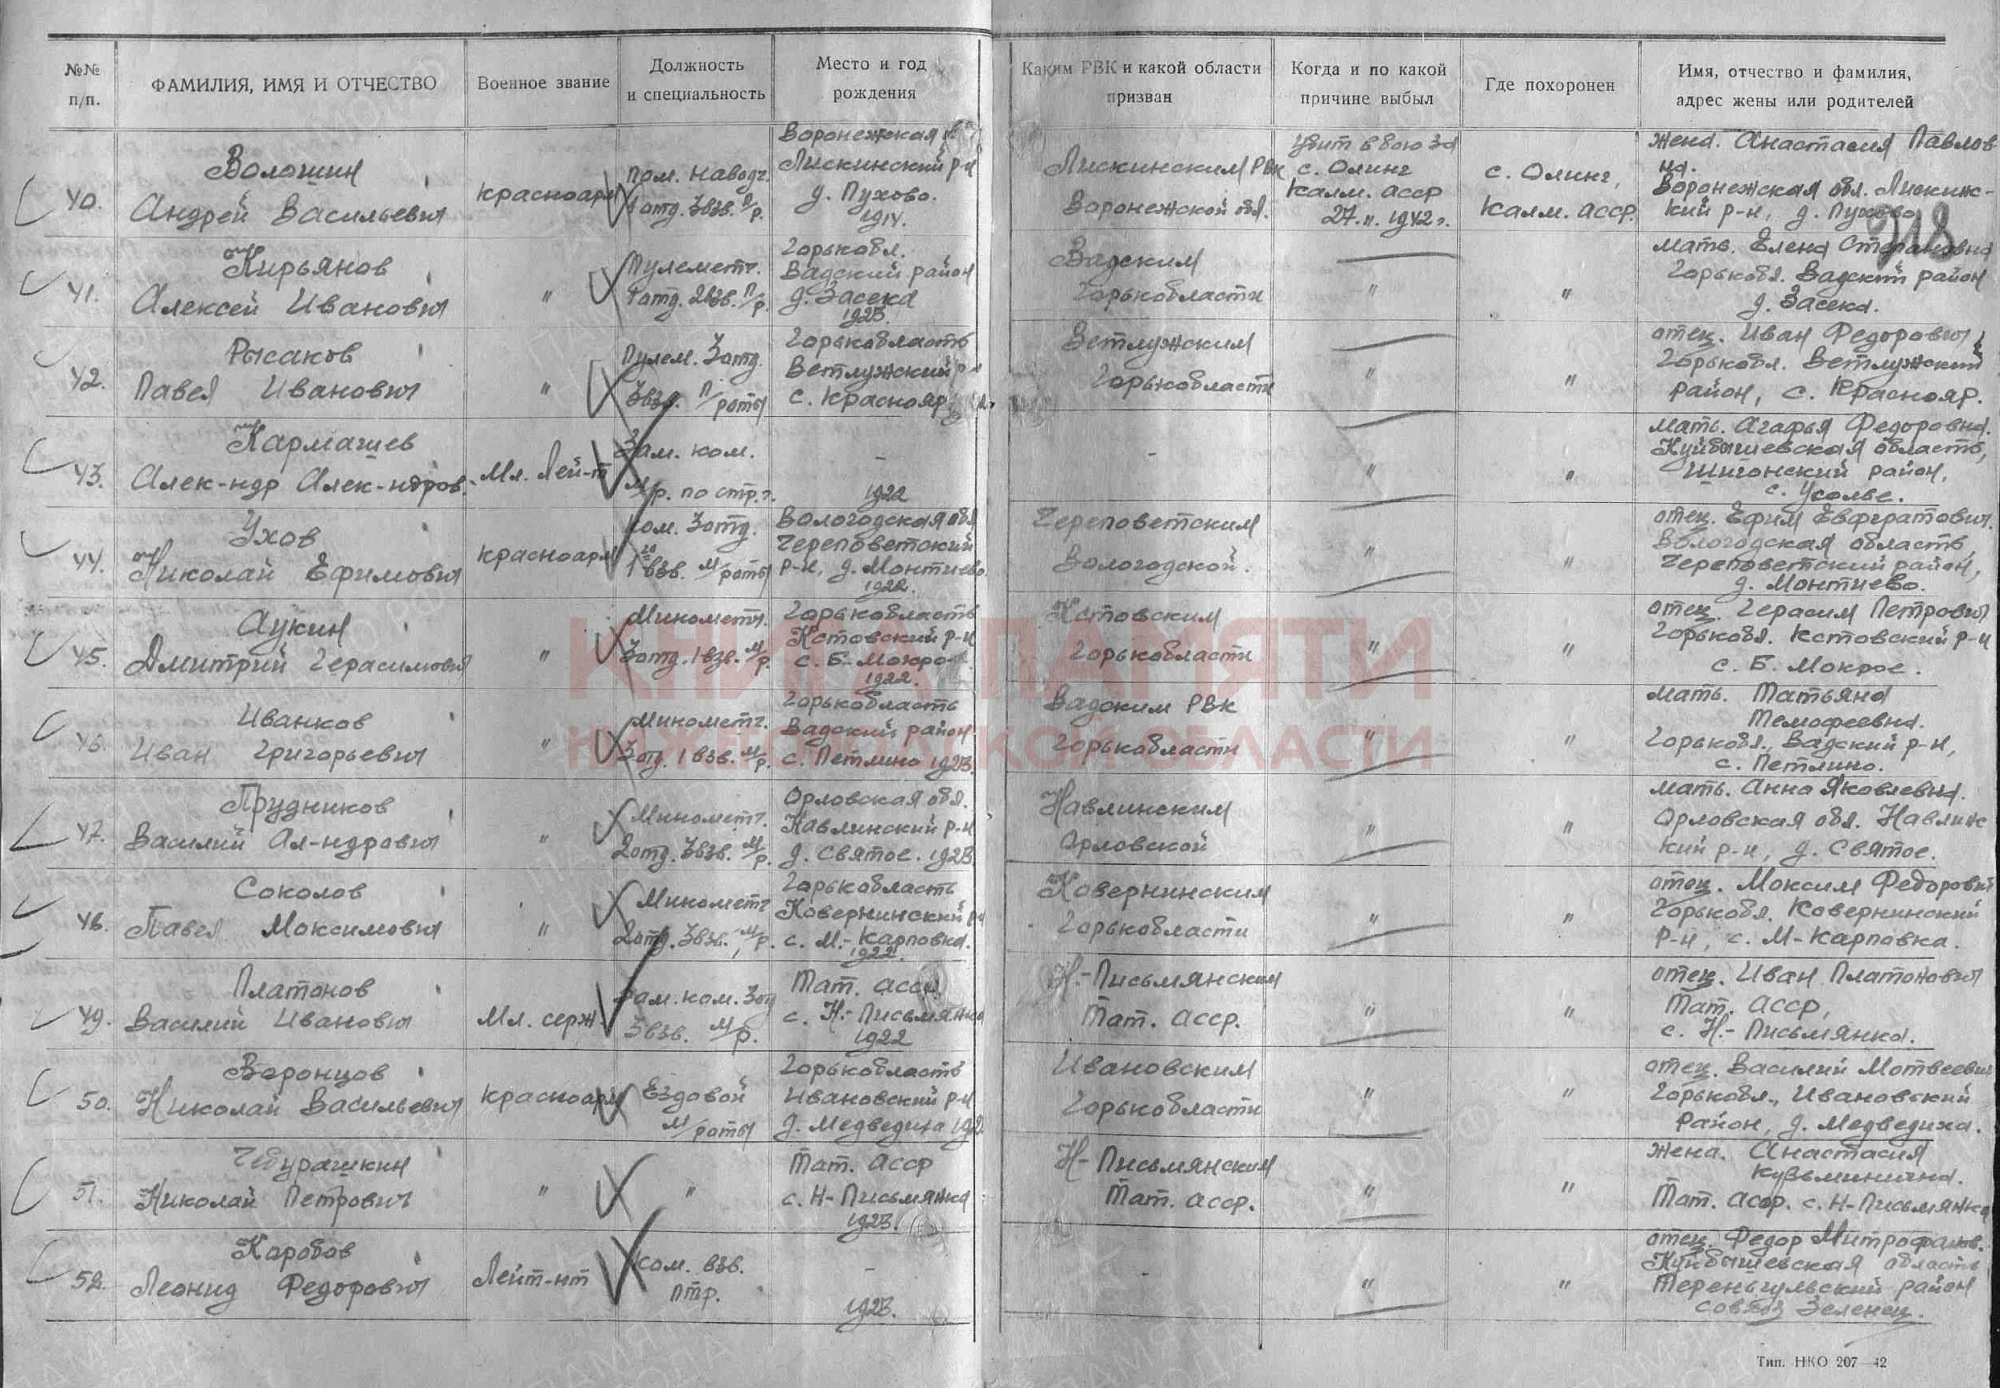 №№ п/п.
ФАМИЛИЯ, ИМЯ И ОТЧЕСТВО
Военное звание
Должность
и специальность
Место и год
рождения
Каким РВК и какой области
призван
Когда и по какой
причине выбыл
Где похоронен
Имя, отчество и фамилия,
адрес жены или родителей
218
40.
Волошин
Андрей Васильевич
красноарм
пом. наводч.
1 отд. 3 взв. п/р.
Воронежская
Лискинский р-н
д. Пухово.
1914.
Лискинским РВК
Воронежской обл.
Убит в бою за
с. Олинг
Калм. АССР
27.11.1942 г.
с. Олинг,
Калм. АССР.
жена. Анастасия Павлов
на.
Воронежская обл. Лискинс-
кий р-н, д. Пухово
41.
Кирьянов
Алексей Иванович
"
Пулеметч.
1 отд. 2 взв. п/р.
Горьк обл.
Вадский район
д. Засека
1923.
Вадским
Горьк области
"
"
мать. Елена Степановна
Горьк обл. Вадский район
д. Засека.
42.
Рысаков
Павел Иванович
"
пулем. 3 отд.
3 взв. п/роты
Горьк область
Ветлужский р-н
с. Краснояр
Ветлужским
Горьк области
"
"
отец. Иван Федорович
Горьк обл. Ветлужский
район, с. Краснояр.
43.
Кармашев
Алек-ндр Алек-ндров.
Мл. Лей-т
Зам. ком.
м/р. по стр. ч.
-
1922
-
"
"
мать. Агафья Федоровна.
Куйбышевская область,
Шигонский район,
с. Усолье.
44.
Ухов
Николай Ефимович
красноарм
ком. 3 отд.
1го взв. м/роты
Вологодская обл
Череповетский
р-н, д. Монтиево.
1922.
Череповетским
Вологодской.
"
"
отец. Ефим Евфератович.
Вологодская область,
Череповетский район,
д. Монтиево.
45.
Аукин
Дмитрий Герасимович
"
Минометч.
3 отд. 1 взв. м/р.
Горьк область
Кстовский р-н
с. Б. Мокро-
1922.
Кстовским
Горьк области
"
"
отец. Герасим Петрович
Горьк обл. Кстовский р-н
с. Б. Мокрое.
46.
Иванков
Иван Григорьевич
"
Минометч.
3 отд. 1 взв. м/р.
Горьк область
Вадский район
с. Петлино 1923.
Вадским РВК
Горьк области
"
"
мать. Татьяна
Темофеевна.
Горьк обл., Вадский р-н,
с. Петлино.
47.
Прудников
Василий Ал-ндрович
"
Минометч.
2 отд. 3 взв. м/р.
Орловская обл.
Навлинский р-н
д. Святое. 1923
Навлинским
Орловской
"
"
мать. Анна Яковлевна.
Орловская обл. Навлинс
кий р-н, д. Святое.
48.
Соколов
Павел Максимович
"
Минометч
2 отд. 3 взв. м/р.
Горьк область
Ковернинский р-н
с. М.-Карповка.
1922.
Ковернинским
Горьк области
"
"
отец. Максим Федорович
Горьк обл. Ковернинский
р-н, с. М-Карповка.
49.
Платонов
Василий Иванович
Мл. серж.
Зам. ком. 3 от
3 взв. м/р.
Тат. АССР.
с. Н.-Письмянка
1922
Н-Письмянским
Тат. АССР.
"
"
отец. Иван Платонович
Тат. АССР,
с. Н-Письмянка.
50.
Воронцов
Николай Васильевич
красноарм
Ездовой
м/роты
Горьк область
Ивановский р-н
д. Медведиха
Ивановским
Горьк области
"
"
отец. Василий Матвеевич
Горьк обл., Ивановский
район, д. Медведиха.
51.
Чебурашкин
Николай Петрович
"
"
Тат. АССР
с. Н-Письмянка
1923.
Н-Письмянским
Тат. АССР.
"
"
жена. Анастасия
Кузьминична.
Тат. АССР. с. Н-Письмянка
52.
Каробов
Леонид Федорович
Лейт-нт
ком. взв.
ПТР.
-
1923.
-
"
"
отец. Федор Митрофанов.
Куйбышевская область
Тереньгульский район
совхоз Зеленец.
КНИГА ПАМЯТИ
НИЖЕГОРОДСКОЙ ОБЛАСТИ
Тип. НКО 207—42